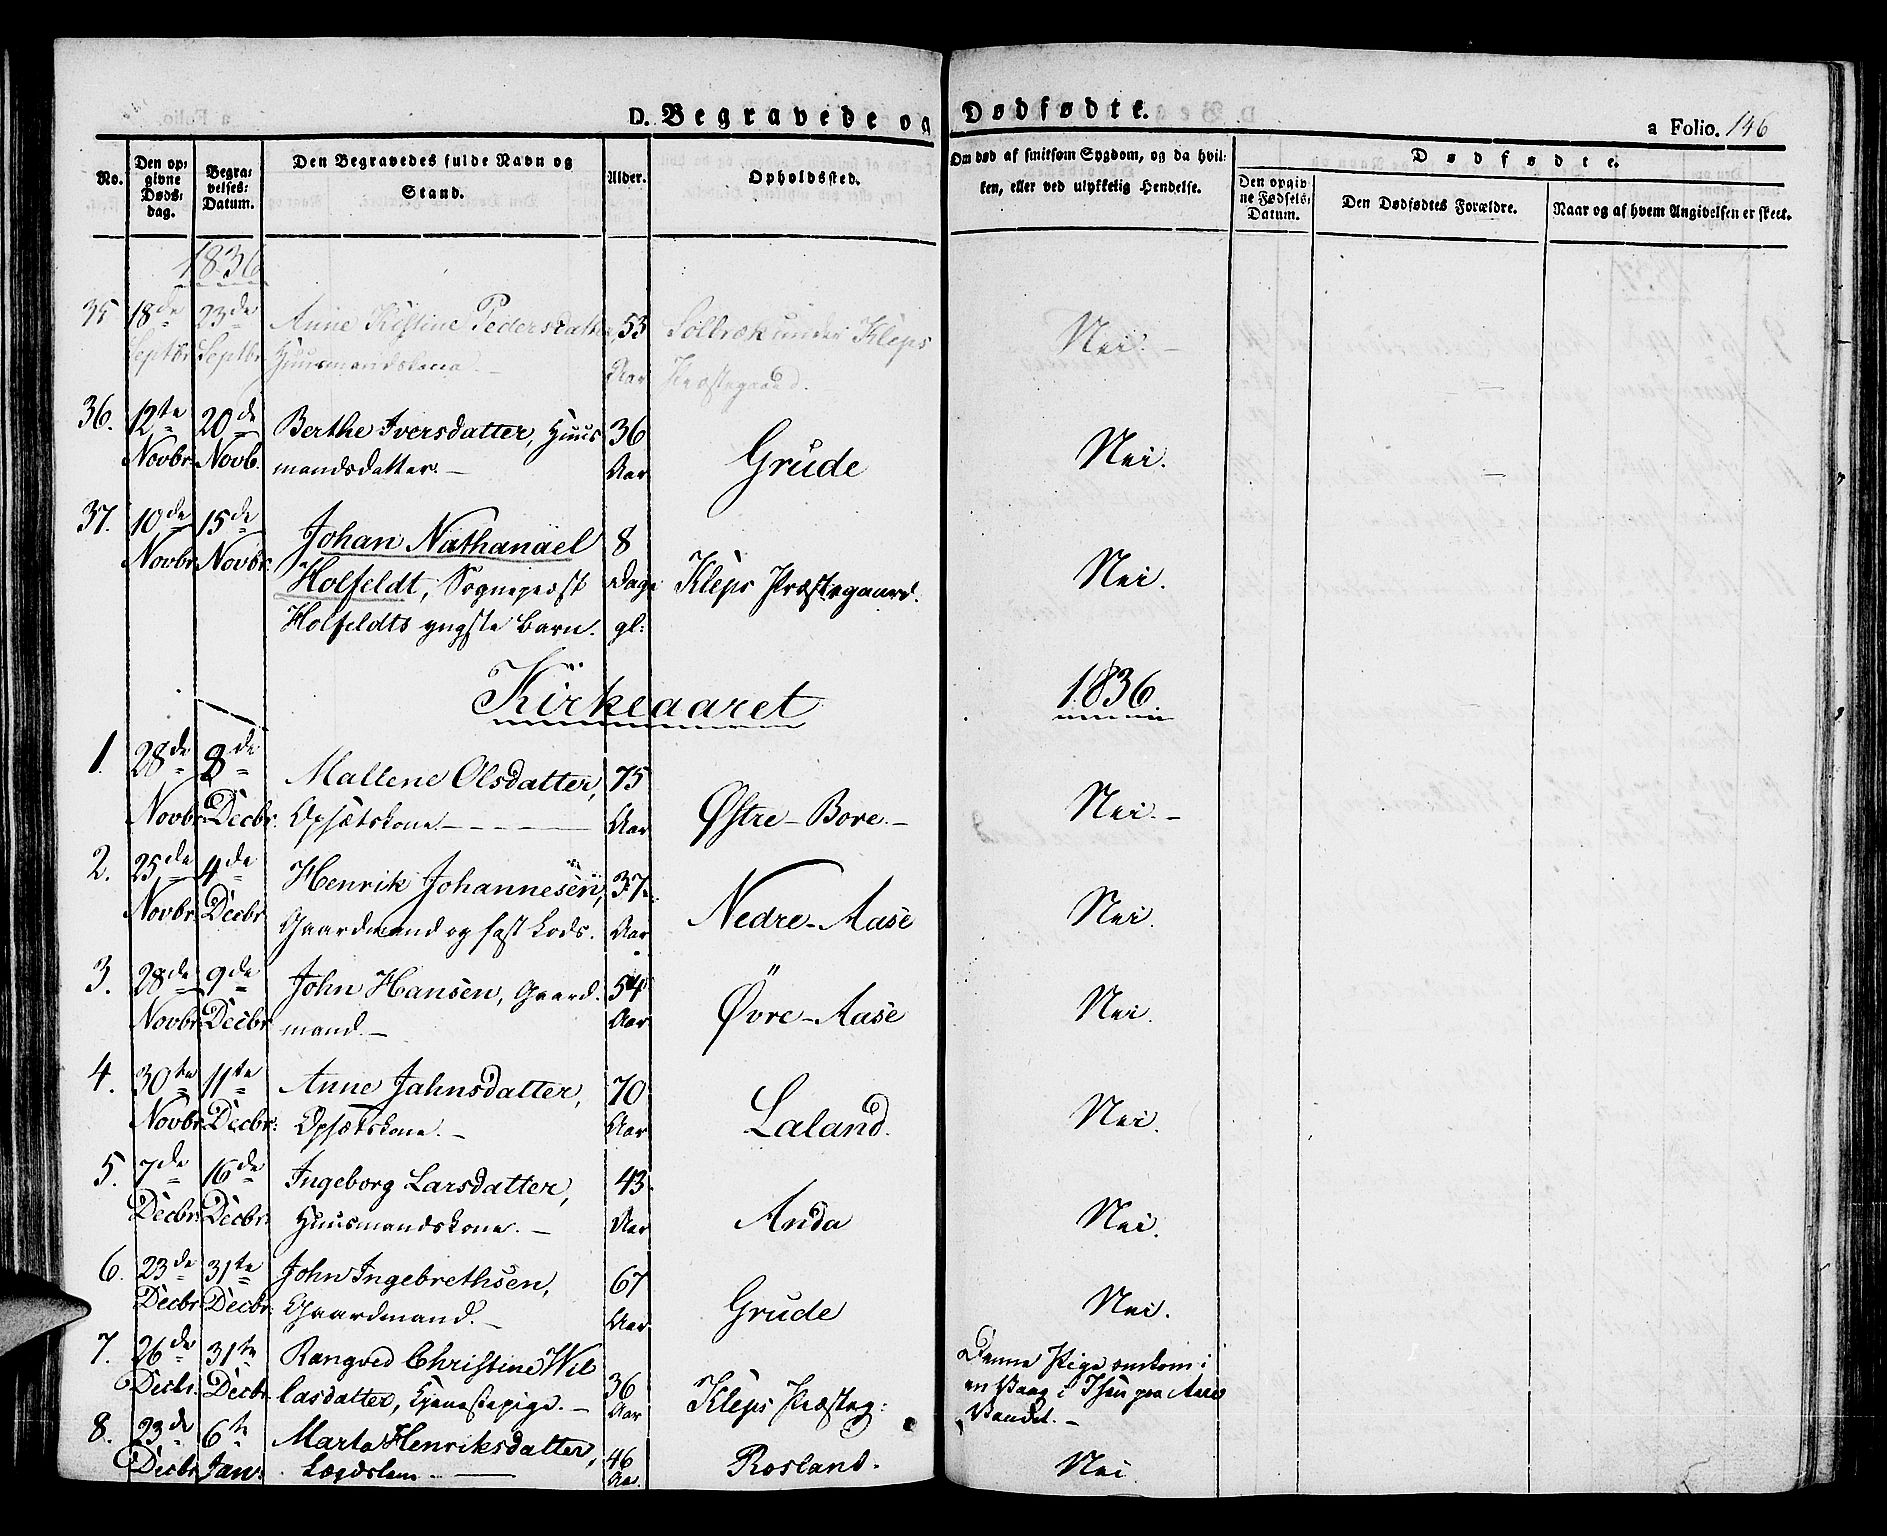 D. Begravede og Dødfødte.
a Folio. 146
No.
Den op-
givne
Døds-
dag.
Begra-
velses-
Datum.
Den Begravedes fulde Navn og
Stand.
Alder.
Opholdssted.
Om død af smitsom Sygdom, og da hvil-
ken, eller ved ulykkelig Hendelse.
Dødfødte.
Den opgiv-
ne Fødsels-
Datum.
Den Dødfødtes Forældre.
Naar og af hvem Angivelsen er skeet.
1836
35 18de 23de Anne Kistine Pedersdatter 53 Solbræk under Kleps Nei. -
Septbr Septbr Huusmandskona - Aar Præstegaard.
36. 12te 20de Berthe Iversdatter, Huus 36 Grude Nei.
Novbr Novb. mandsdatter. - Aar
37. 10de 15de Johan Nathanael 8 Kleps Præstegaard. Nei.
Novbr Novbr. Holfeldt, Sogneprest Dage
Holfeldts yngste Barn. gl:
Kirkeaaret 1836.
1. 28de 8de Mallene Olsdatter, 75 Østre-Bore.- Nei. -
Novbr. Decbr. Opsætskone. - Aar
2. 25de 4de Henrik Johannesen, 37. Nedre-Aase Nei.
Novbr Decbr Gaardmand og fast Lods. Aar
3. 28de 9de John Hansen, Gaard. 54 Övre-Aase Nei.
Novbr. Decbr mand. - Aar
4. 30te 11te Anne Jahnsdatter, 70 Laland. Nei.
Novbr. Decbr: Opsætskone. - Aar
5. 7de 16de Ingeborg Larsdatter, 43. Anda Nei.
Decbr. Decbr. Huusmandskone. - Aar
6. 23de 31te John Ingebrethsen, 67 Grude Nei.
Decbr Decbr. Gaardmand. - Aar.
7. 26de 31te Rangved Christine Wil 36 Kleps Præsteg: Denne Pige omkom i
Decbr. Decbr lasdatter, tjenestepige. - Aar en Vaag i Isen paa Aase
Vandet. -
8. 23de 6te Marta Henriksdatter, 46 Rosland. Nei
Decbr Jan: Lægdslem. - Aar.